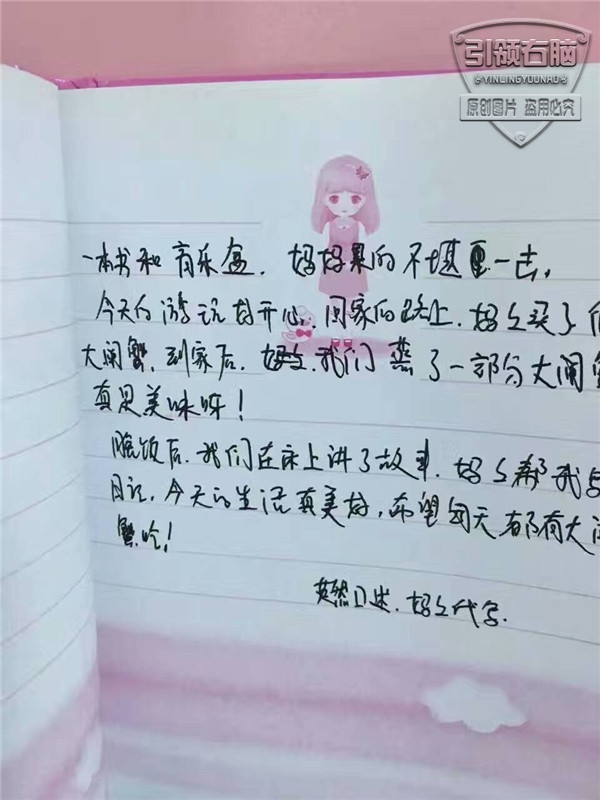 引领右脑
YINLINGYOUNAO
原创图片 盗用必究
一本书和音乐盒，妈妈累的不堪重一击，
今天的游玩好开心，回家的路上，妈妈买了
大闸蟹，到家后，妈妈，我们蒸了一部分大闸
真是美味呀！
晚饭后，我们在床上讲了故事，妈妈帮我
日记，今天的生活真美好，希望每天都有大
蟹吃！
口述，妈妈代写。